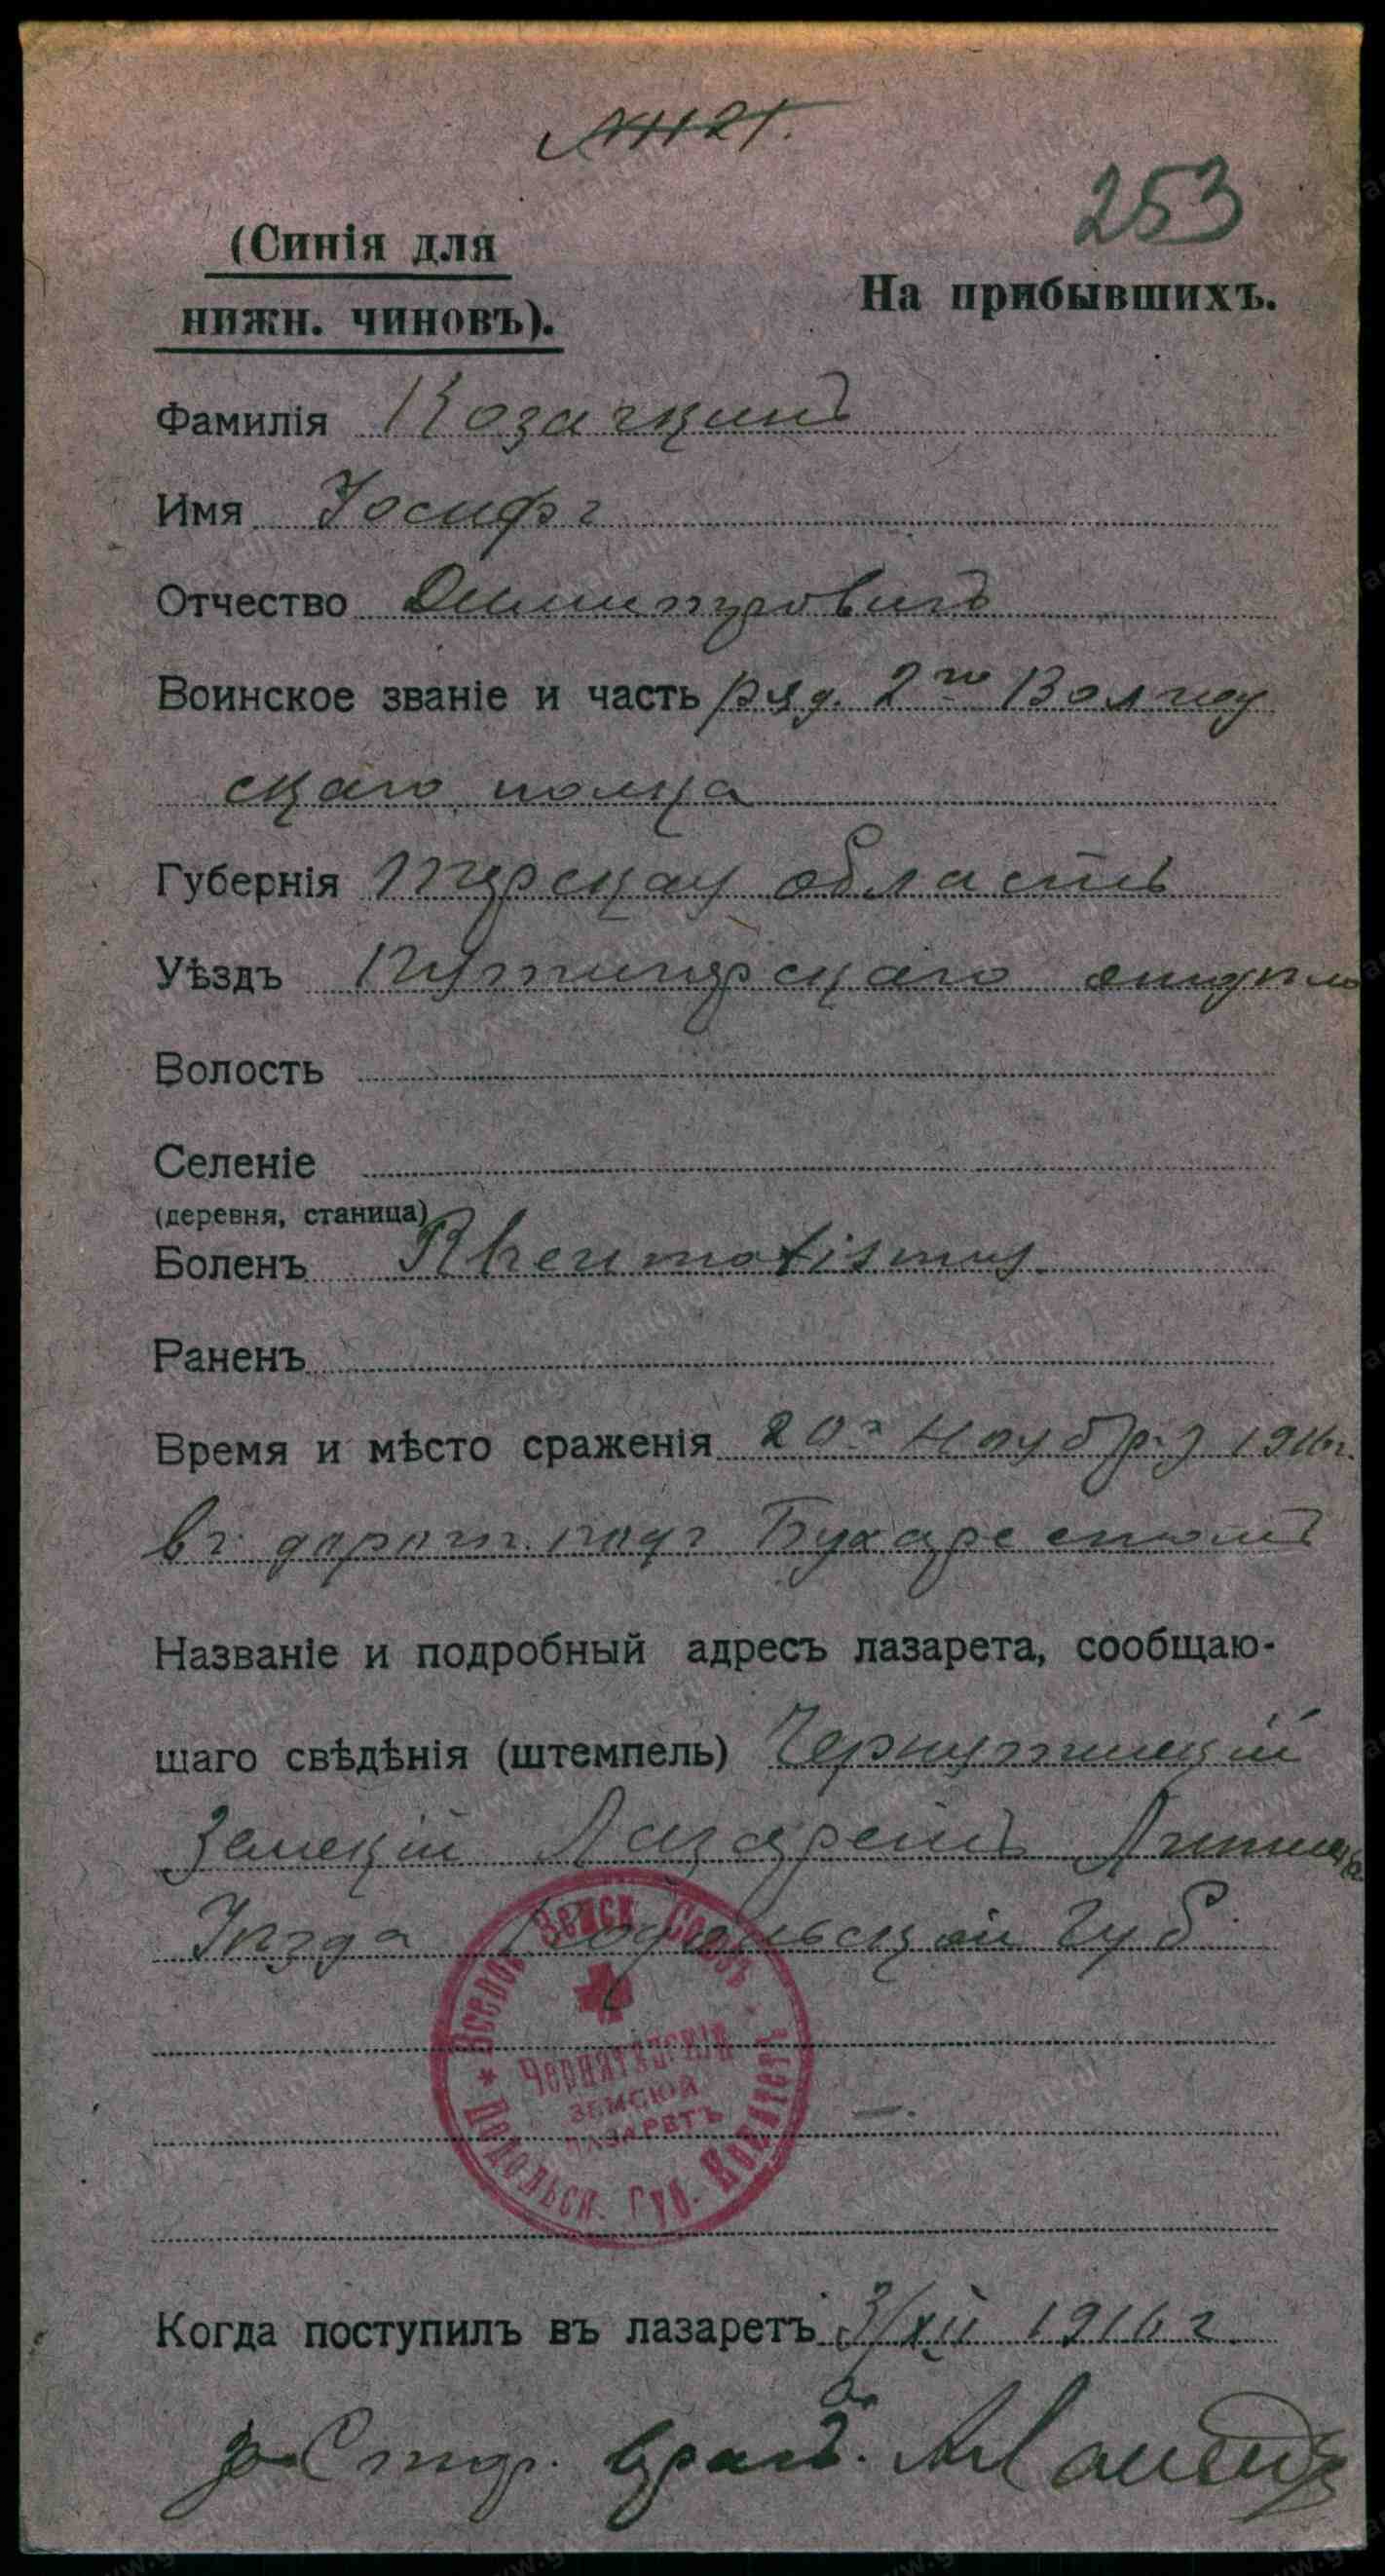 253
(Синія для
нижн. чиновъ).
На прибывшихъ.
Фамилія Козачкинъ
Имя Іосифъ
Отчество Дмитровичъ
Воинское званіе и часть ряд. 2го Волго
скаго полка
Губернія Терская область
Уѣздъ Пятигорскаго отдѣла
Волость
Селеніе
(деревня, станица)
Боленъ Rheumatismus
Раненъ
Время и мѣсто сраженія 20го Ноября 1916г.
въ дорогѣ подъ Бухарестомъ
Названіе и подробный адресъ лазарета, сообщаю-
шаго свѣдѣнія (штемпель) Чернятинскій
Земскій Лазаретъ Литинск.
Уѣзда Подольской Губ.
Всерос. Земск. Союзъ
Чернятинскій
ЗЕМСКІЙ
ЛАЗАРЕТЪ
Подольск. Губ. Комитетъ
Когда поступилъ въ лазаретъ 3/XII 1916 г.
за Стар. врача